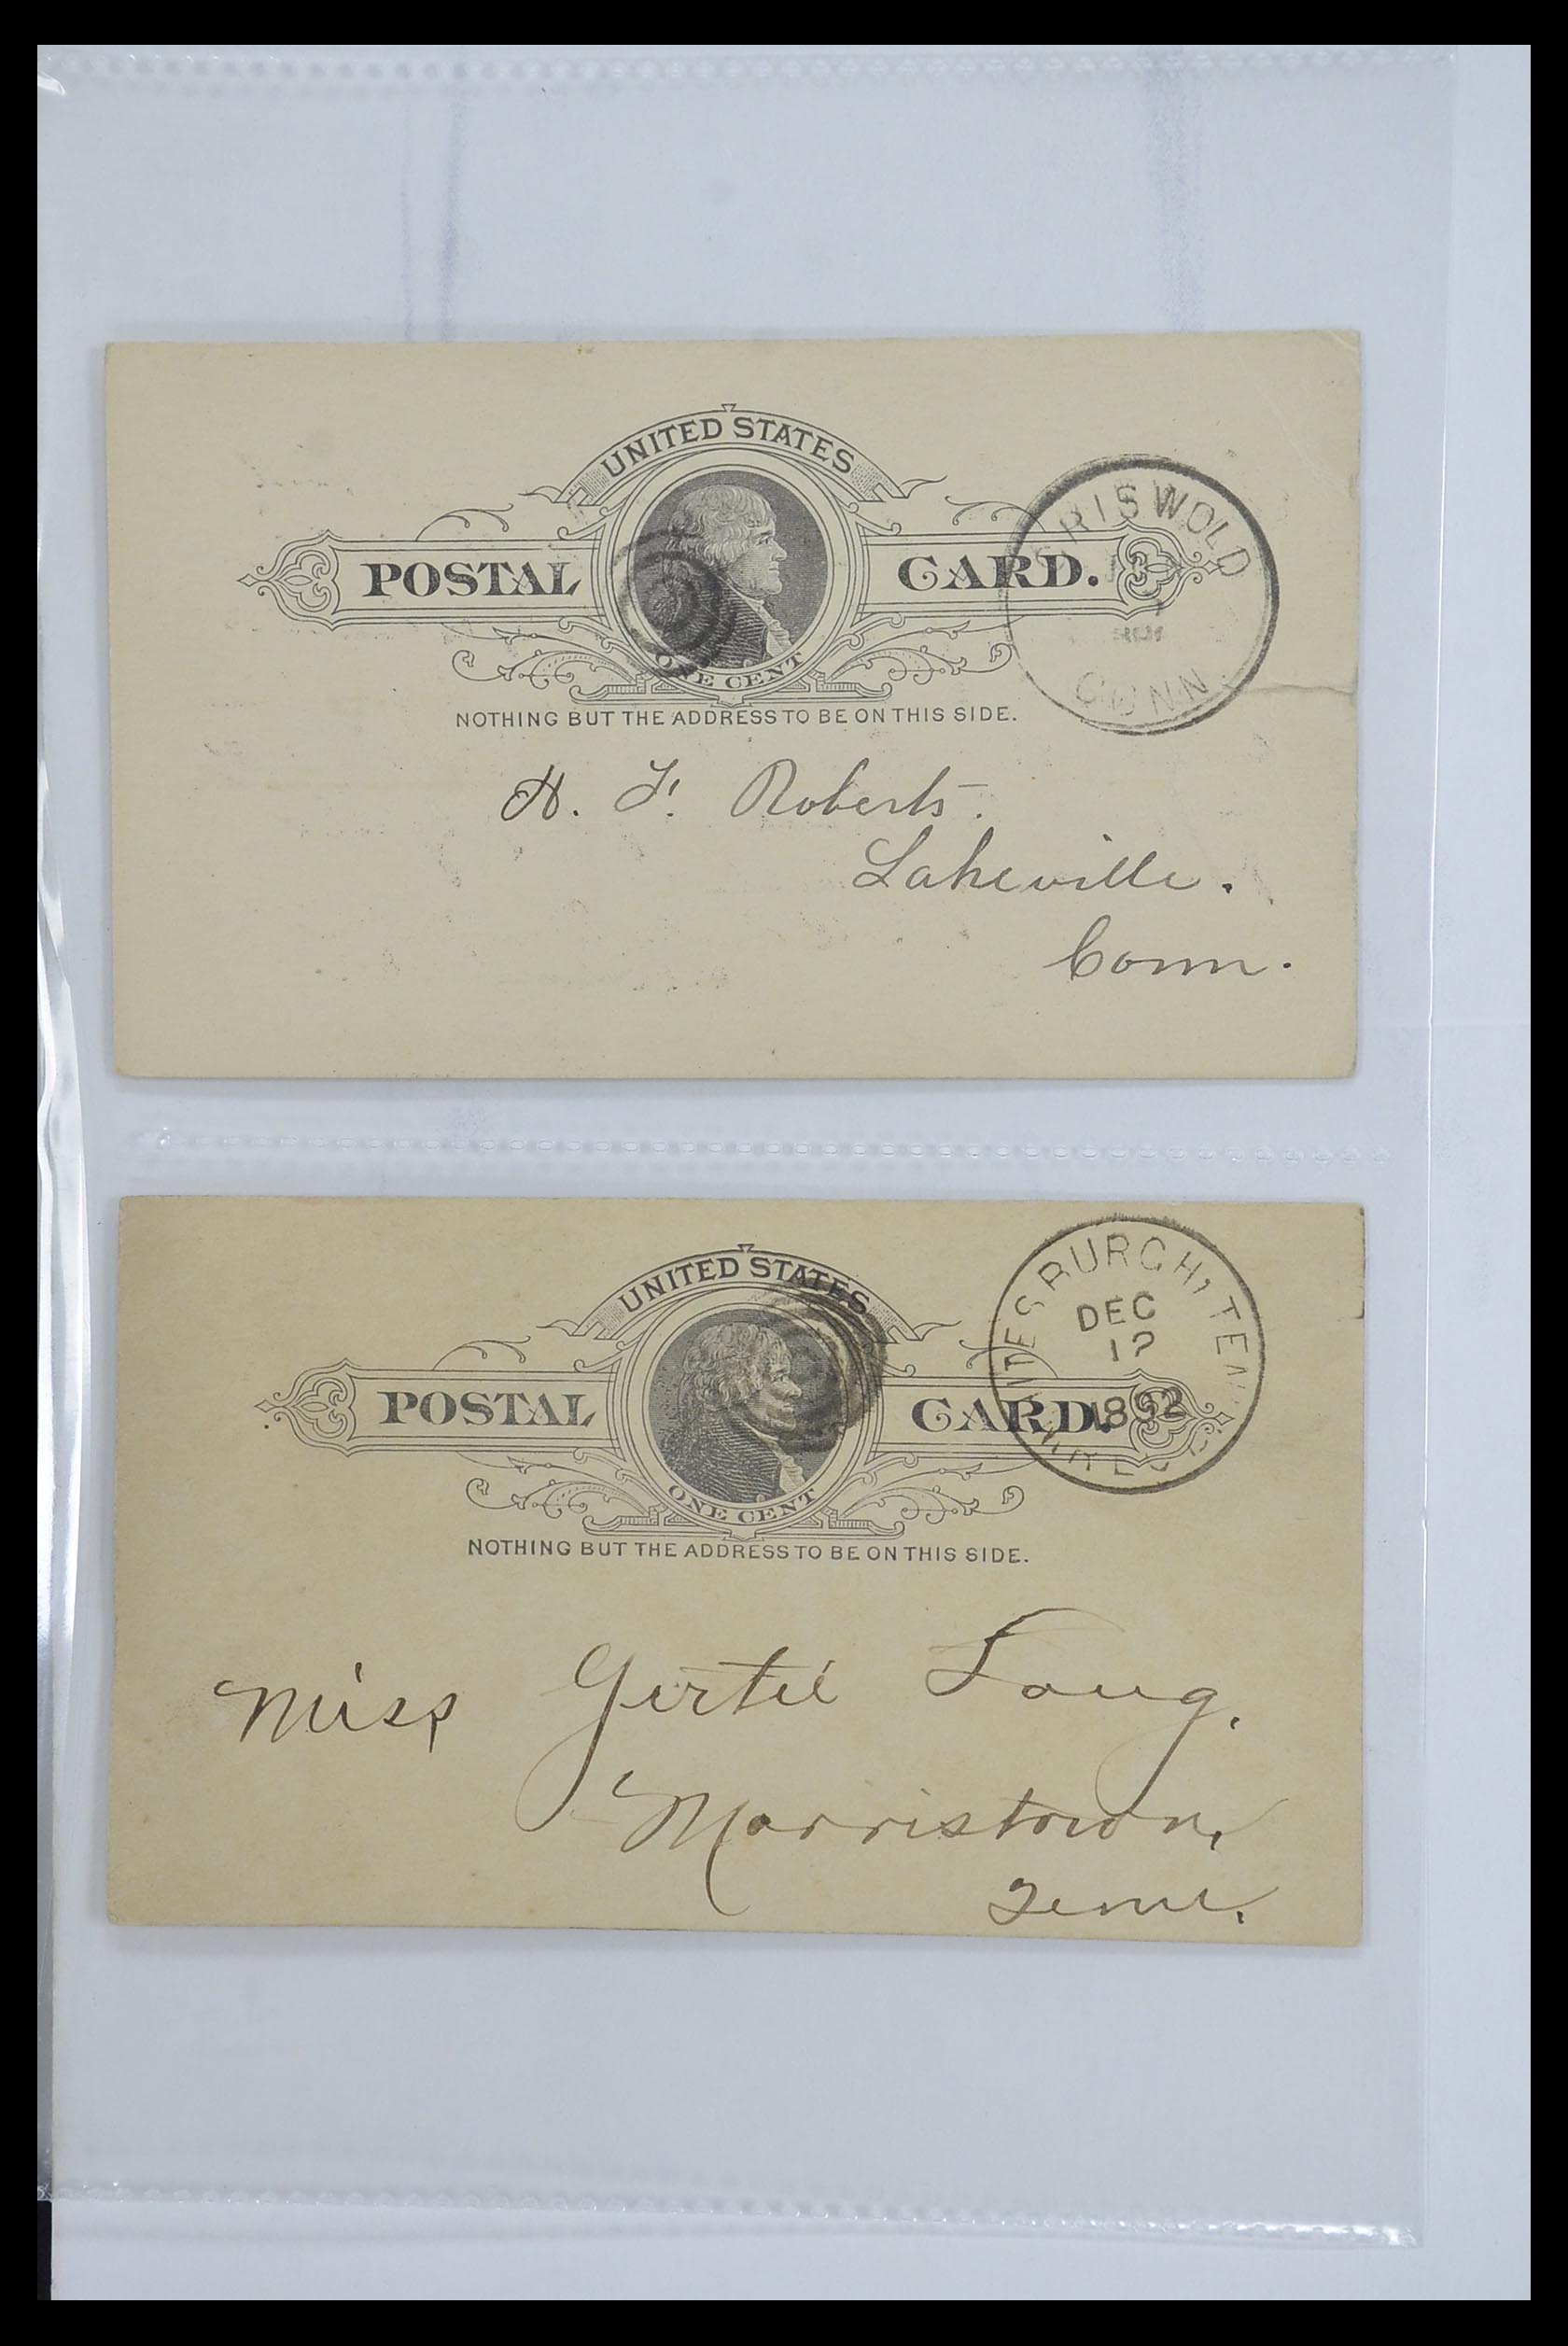 UNITED STATES
POSTAL CARD.
ONE CENT
NOTHING BUT THE ADDRESS TO BE ON THIS SIDE.
RISWOLD
CONN.
H. F. Roberts.
Lakeville.
Conn.
UNITED STATES
POSTAL CARD.
ONE CENT
NOTHING BUT THE ADDRESS TO BE ON THIS SIDE.
ITESBURGH, TEN
DEC
12
1892
Miss Gertie Long.
Morristown,
Tenn.